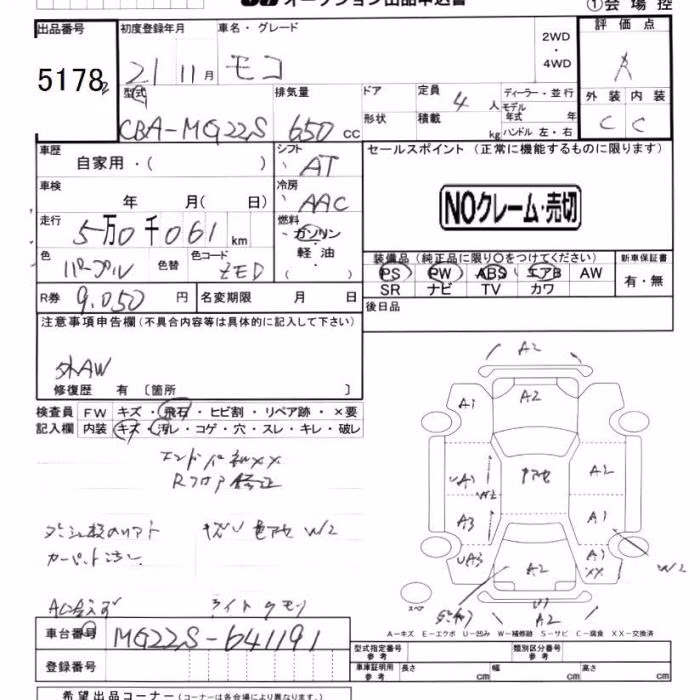 オークション出品申込書
①会場控
出品番号
5178
初度登録年月
21 11月
車名・グレード
モコ
2WD
・
4WD
評価点
R
外装 内装
C C
型式
CBA-MG22S
排気量
650 cc
ドア
形状
定員
4 人
積載
kg
ディーラー・並行
モデル
年式 年
ハンドル 左・右
車歴
自家用・( )
シフト
AT
セールスポイント (正常に機能するものに限ります)
NOクレーム・売切
車検
年 月( 日)
冷房
AAC
走行
5万0千061 km
燃料
ガソリン
・
軽油
・
( )
色
パープル
色替
色コード
ZED
装備品 (純正品に限り○をつけてください)
PS PW ABS エアB AW
SR ナビ TV カワ
新車保証書
有・無
R券 9,050 円
名変期限 月 日
後日品
注意事項申告欄 (不具合内容等は具体的に記入して下さい)
外AW
修復歴 有 〔箇所 〕
検査員
記入欄
FW キズ・飛石・ヒビ割・リペア跡・×要
内装 キズ・汚レ・コゲ・穴・スレ・キレ・破レ
Rフロア修正
W2
カーペット
ライトクモリ
A2
A1
A2
UA1
W2
A2
A3
A1
UA3
A3
XX
W2
A2
U1
A2
スペア
A−キズ E−エクボ U−凹み W−補修跡 S−サビ C−腐食 XX−交換済
車台番号
MG22S-641191
登録番号
型式指定番号
参考
類別区分番号
参考
車庫証明用
参考
長さ cm 幅 cm 高さ cm
希望出品コーナー (コーナーは各会場により異なります。)